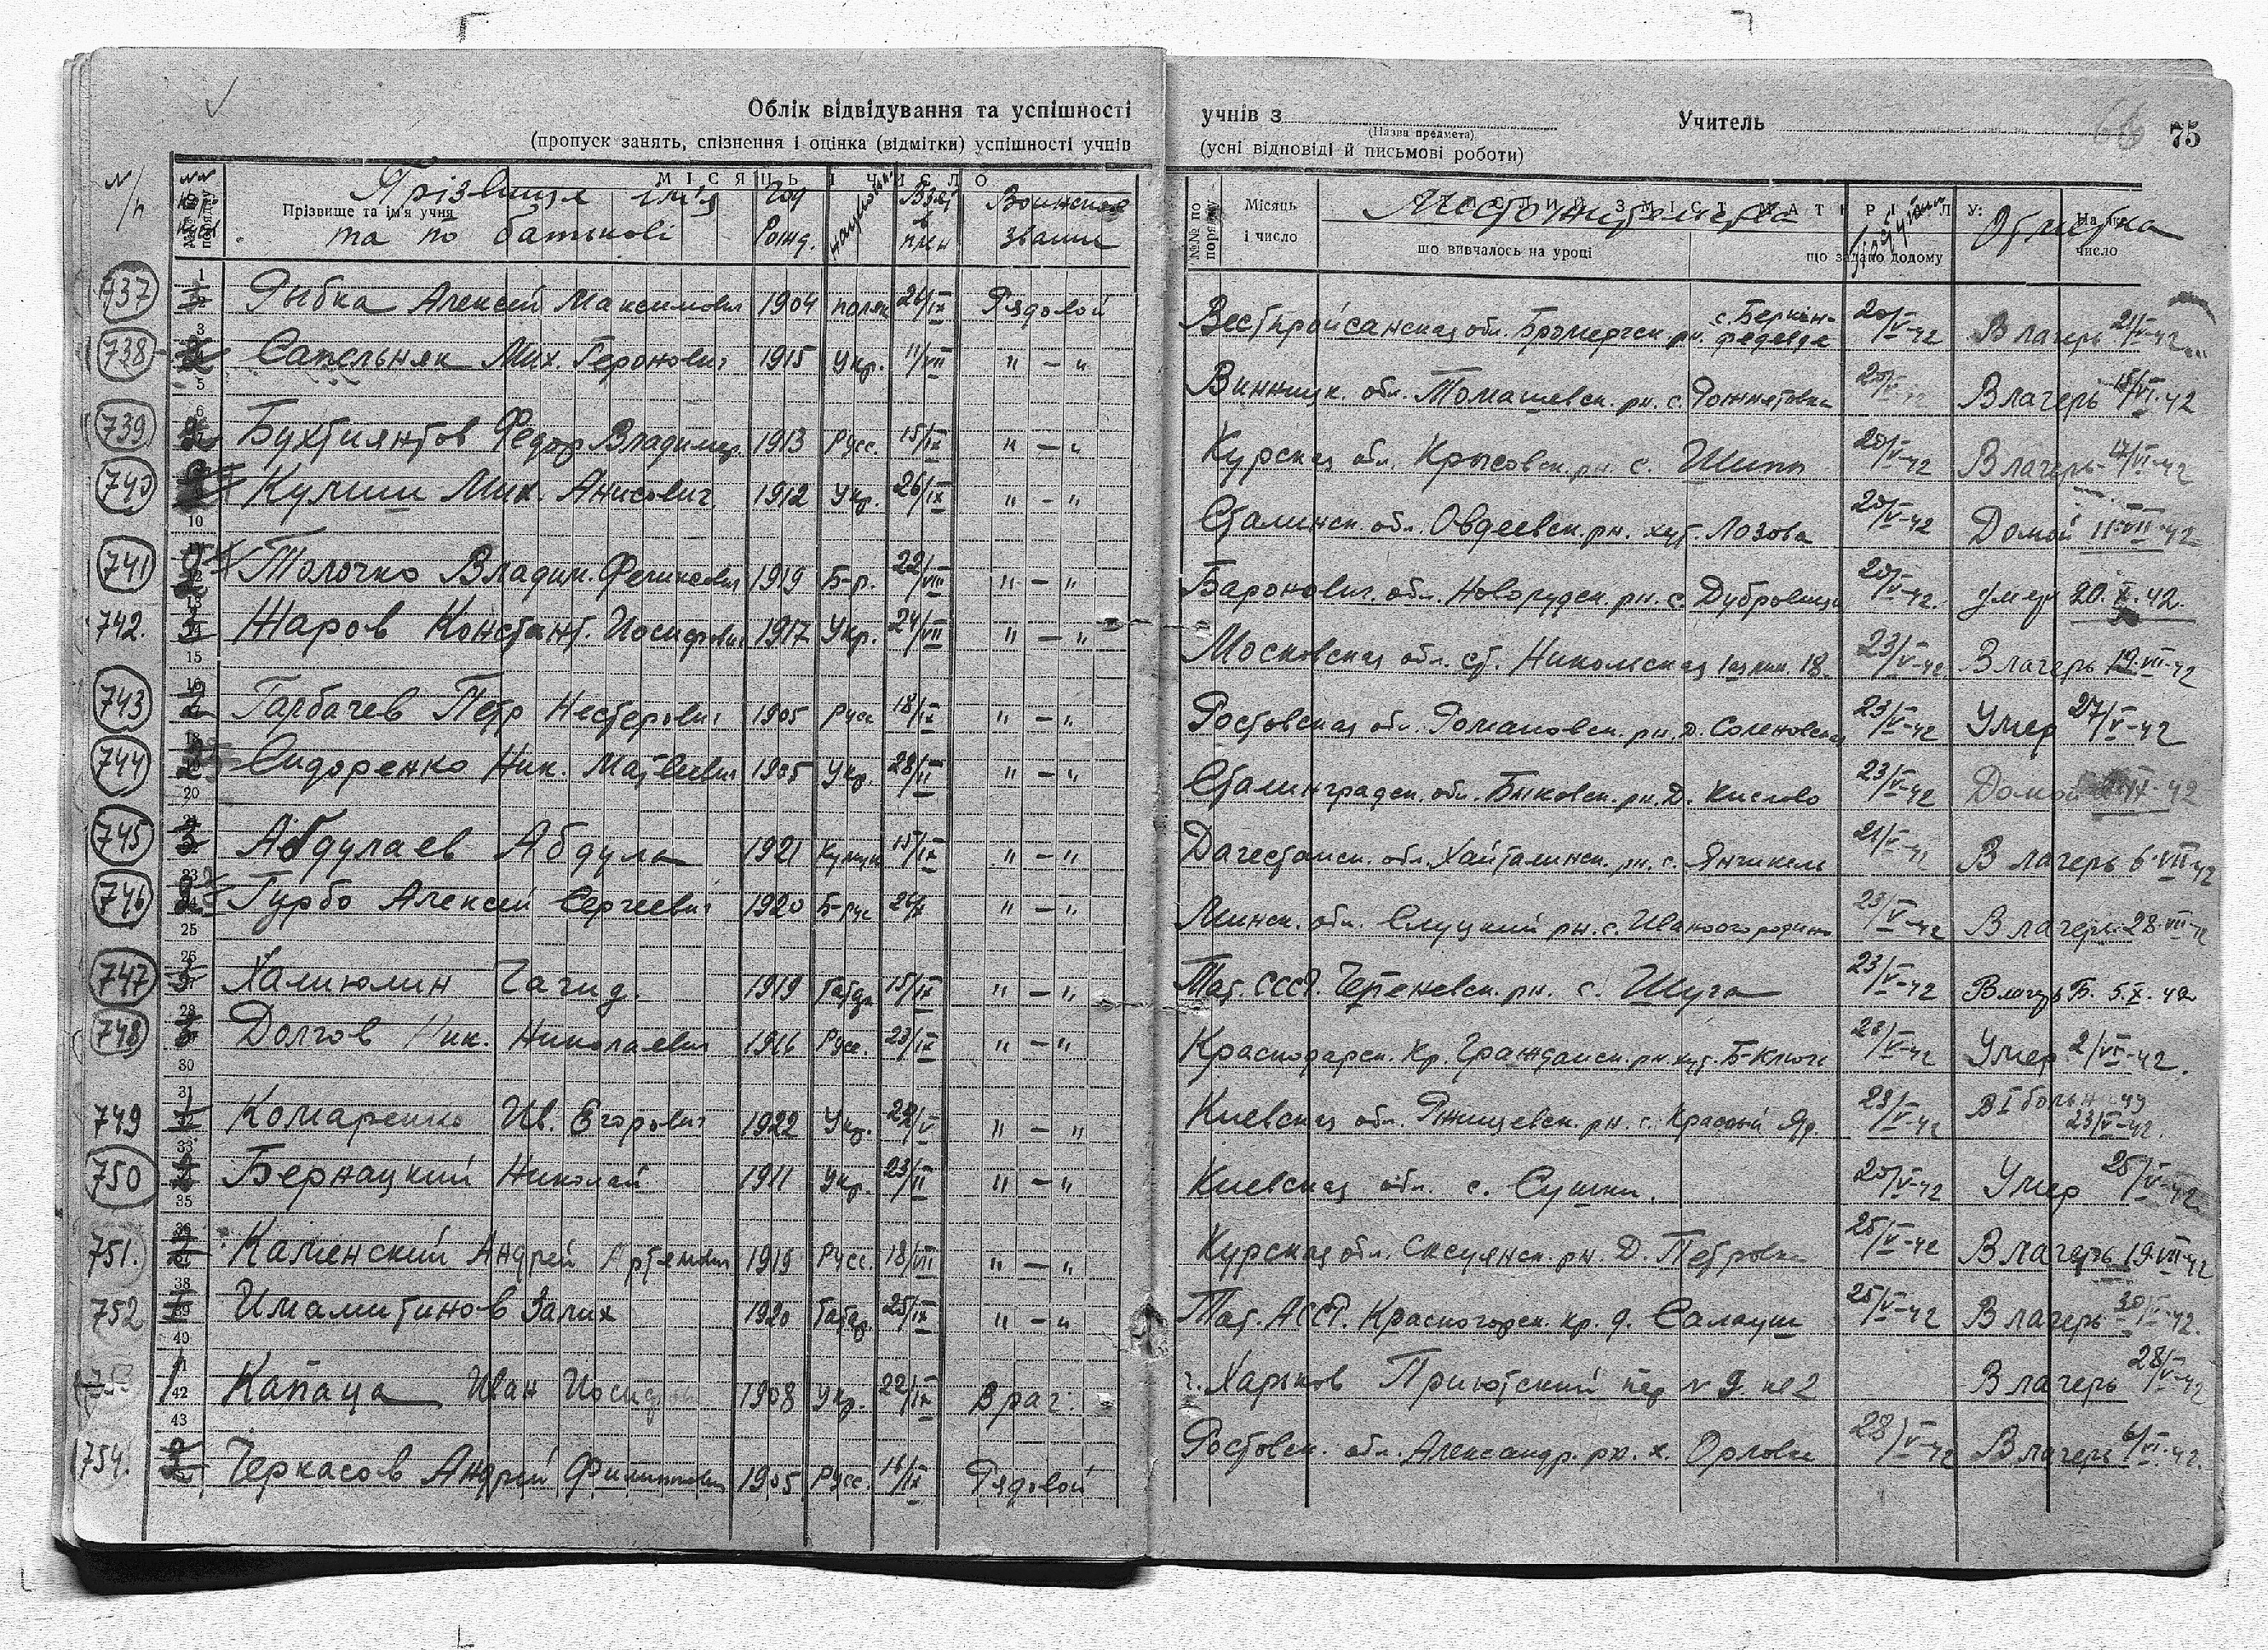 Облік відвідування та успішності
(пропуск занять, спізнення і оцінка (відмітки) успішності учнів
учнів з
(Назва предмета)
Учитель
66 75
(усні відповіді й письмові роботи)
МІСЯЦЬ І ЧИСЛО
№ п/п
Прізвище та ім'я учня
Прізвище ім'я та по батькові
Год рожд.
Взят в плен
Воинское звание
№№ по порядку
Місяць і число
що вивчалось на уроці
що задано додому
Местожительства
Отметка
На яке число
737 Рыбка Алексей Максимович 1904 поляк 26/IX Рядовой обл. с. 20/V-42 В лагерь 21/V-42
738 Сапельняк Мих. Геронович 1915 Укр. 11/VII " — " Винницк. обл. Томашевск. рн. с. Рожнятовка 20/V-42 В лагерь 15/VI-42
739 Бухтиянтов Федор Владимир. 1913 Русс. 15/IX " — " Курская обл. Крысовск. рн. с. Шипы 20/V-42 В лагерь 17/VI-42
740 Кулиш Мих. Анисович 1912 Укр. 26/IX " — " Сталинск. обл. Овдеевск. рн. хут. Лозова 20/V-42 Домой 11-VII-42
741 Толочко Владим. 1919 Б-р. 22/VIII " — " Баронович. обл. Новорудск. рн. с. Дубровица 20/V-42. умер 20.X.42.
742. Жаров Констант. Иосифович 1917 Укр. 24/VII " — " Московская обл. ст. Никольская 18. 23/V-42 В лагерь 19-VII-42
743 Гарбачев Петр Нестерович 1905 Русс 18/IX " — " Ростовская обл. Романовск. рн. д. Соленовская 23/V-42 Умер 27/V-42
744 Сидоренко Ник. Матвеевич 1905 Укр. 28/II " — " Сталинградск. обл. Быковск. рн. Д. Кислово 23/V-42 Домой 42
745 Абдулаев Абдула 1921 Кумык 15/IX " — " Дагестанск. обл. Хайталинск. рн. с. Янгикел 21/V-42 В лагерь 6-VII-42
746 Гурбо Алексей Сергеевич 1920 Б-рус " — " Минск. обл. Слуцкий рн. с. Иваногородино 23/V-42 В лагерь 28-VII-42
747 Халиюлин Гагид. 1919 Татар 15/IX " — " Тат. СССР. Черепневск. рн. с. Шуга 23/V-42 В лагерь Б. 5.X.42
748 Долгов Ник. Николаевич 1916 Русс. 23/IX " — " Краснодарск. Кр. Гражданск. рн. хут. Б-Ключ 23/V-42 Умер 2/VI-42.
749 Комаренко Ив. Егорович 1922 Укр. 22/V " — " Киевская обл. Ржищевск. рн. с. Красный Яр. 23/V-42 В I больницу 23/V-42.
750 Бернацкий Николай 1911 Укр. 23/II " — " Киевская обл. с. Сушки. 20/V-42 Умер 25/V-42
751. Каменский Андрей Артемович 1919 Русс. 18/VII " — " Курская обл. рн. Д. Петровка 25/V-42 В лагерь 19-VII-42
752 Имамитинов Залих 1920 Татар. 25/IX " — " Тат. АССР. Красногорск. кр. д. Салауш 25/V-42 В лагерь 30/V-42.
753 Капаца Иван Иосифов 1908 Укр. 22/IX Врач. г. Харьков Приютский пер № 9 кв 2 В лагерь 28/V-42
754. Черкасов Андрей Филиппович 1905 Русс. 16/IX Рядовой Ростовск. обл. Александр. рн. х. Орловка 28/V-42 В лагерь 6/VI-42.